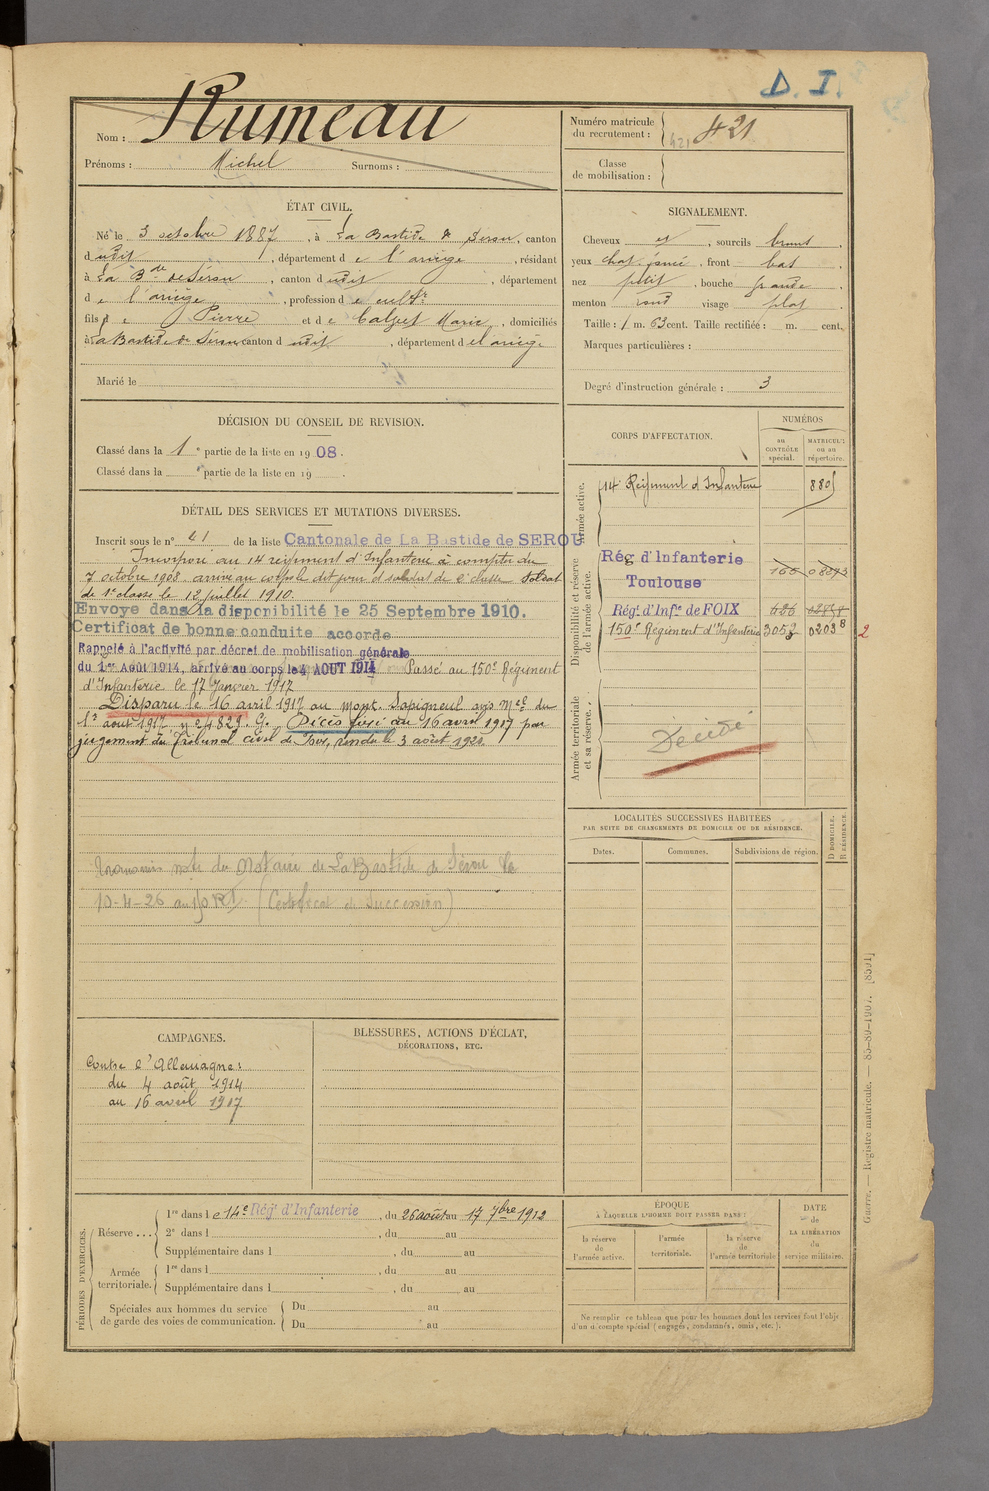 D. I.
Nom : Rumeau
Prénoms : Michel Surnoms :
Numéro matricule du recrutement : 421 421
Classe de mobilisation :
ÉTAT CIVIL.
Né le 3 octobre 1887, à La Bastide de Serou, canton
dudit, département de l'ariège, résidant
à La Bde de Sérou, canton dudit, département
de l'ariège, profession de cultr
fils de Pierre et de Calvet Marie, domiciliés
à La Bastide de Sérou canton dudit, département de l'ariège
Marié le
SIGNALEMENT.
Cheveux et, sourcils bruns,
yeux chat. foncé, front bas,
nez petit, bouche grande,
menton rond visage plat,
Taille : 1 m. 63 cent. Taille rectifiée : m. cent.
Marques particulières :
Degré d'instruction générale : 3
DÉCISION DU CONSEIL DE REVISION.
Classé dans la 1e partie de la liste en 1908.
Classé dans la e partie de la liste en 19 .
CORPS D'AFFECTATION.
NUMÉROS
au CONTRÔLE spécial.
MATRICULE ou au répertoire.
Armée active.
14e Régiment d'Infanterie 8805
Disponibilité et réserve de l'armée active.
Rég d'Infanterie Toulouse
Régt d'Infie de FOIX
150e Régiment d'Infanterie 3052 02038 2
Armée territoriale et sa réserve.
Décédé
DÉTAIL DES SERVICES ET MUTATIONS DIVERSES.
Inscrit sous le n° 41 de la liste Cantonale de La Bastide de SEROU
Incorporé au 14 régiment d'Infanterie à compter du
7 octobre 1908. arrivé au corps le dit jour et soldat de 2e classe Soldat
de 1e classe le 12 juillet 1910.
Envoye dans la disponibilité le 25 Septembre 1910.
Certificat de bonne conduite accorde
Rappelé à l'activité par décret de mobilisation générale
du 1er Août 1914, arrivé au corps le 4 AOUT 1914 Passé au 150e Régiment
d'Infanterie le 17 Janvier 1917
Disparu le 16 avril 1917 au mont Sapigneul avis Mel du
1r aout 1917 n° 24829. G. Décès fixé au 16 avril 1917 par
jugement du Tribunal civil de Foix, rendu le 3 août 1921.
note du Notaire de La Bastide de Serou le
10-4-26 au (Certificat de Succession)
LOCALITÉS SUCCESSIVES HABITÉES
PAR SUITE DE CHANGEMENTS DE DOMICILE OU DE RÉSIDENCE.
Dates.
Communes.
Subdivisions de région.
D DOMICILE. R RÉSIDENCE.
CAMPAGNES.
Contre l'Allemagne :
du 4 août 1914
au 16 avril 1917
BLESSURES, ACTIONS D'ÉCLAT,
DÉCORATIONS, ETC.
PÉRIODES D'EXERCICES.
Réserve ...
1re dans le 14e Rég' d'Infanterie, du 26 août au 17 7bre 1912
2e dans l , du au
Supplémentaire dans l , du au
Armée territoriale.
1re dans l , du au
Supplémentaire dans l , du au
Spéciales aux hommes du service de garde des voies de communication.
Du au
Du au
ÉPOQUE
À LAQUELLE L'HOMME DOIT PASSER DANS :
la réserve de l'armée active.
l'armée territoriale.
la réserve de l'armée territoriale
DATE de LA LIBÉRATION du service militaire.
Ne remplir ce tableau que pour les hommes dont les services font l'objet
d'un compte spécial (engagés, condamnés, omis, etc.).
Guerre. — Registre matricule. — 85-89-1907. [8501]